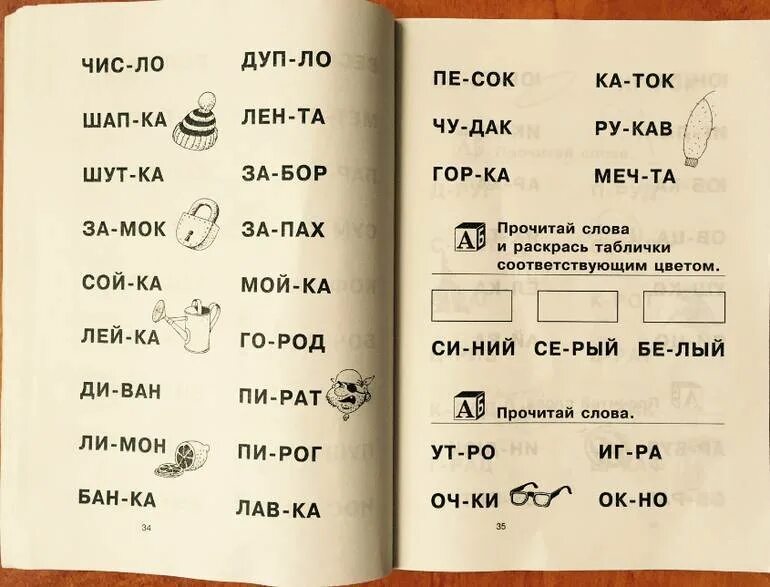 ЧИС-ЛО ДУП-ЛО
ШАП-КА ЛЕН-ТА
ШУТ-КА ЗА-БОР
ЗА-МОК ЗА-ПАХ
СОЙ-КА МОЙ-КА
ЛЕЙ-КА ГО-РОД
ДИ-ВАН ПИ-РАТ
ЛИ-МОН ПИ-РОГ
БАН-КА ЛАВ-КА
34
ПЕ-СОК КА-ТОК
ЧУ-ДАК РУ-КАВ
ГОР-КА МЕЧ-ТА
АБ Прочитай слова
и раскрась таблички
соответствующим цветом.
СИ-НИЙ СЕ-РЫЙ БЕ-ЛЫЙ
АБ Прочитай слова.
УТ-РО ИГ-РА
ОЧ-КИ ОК-НО
35